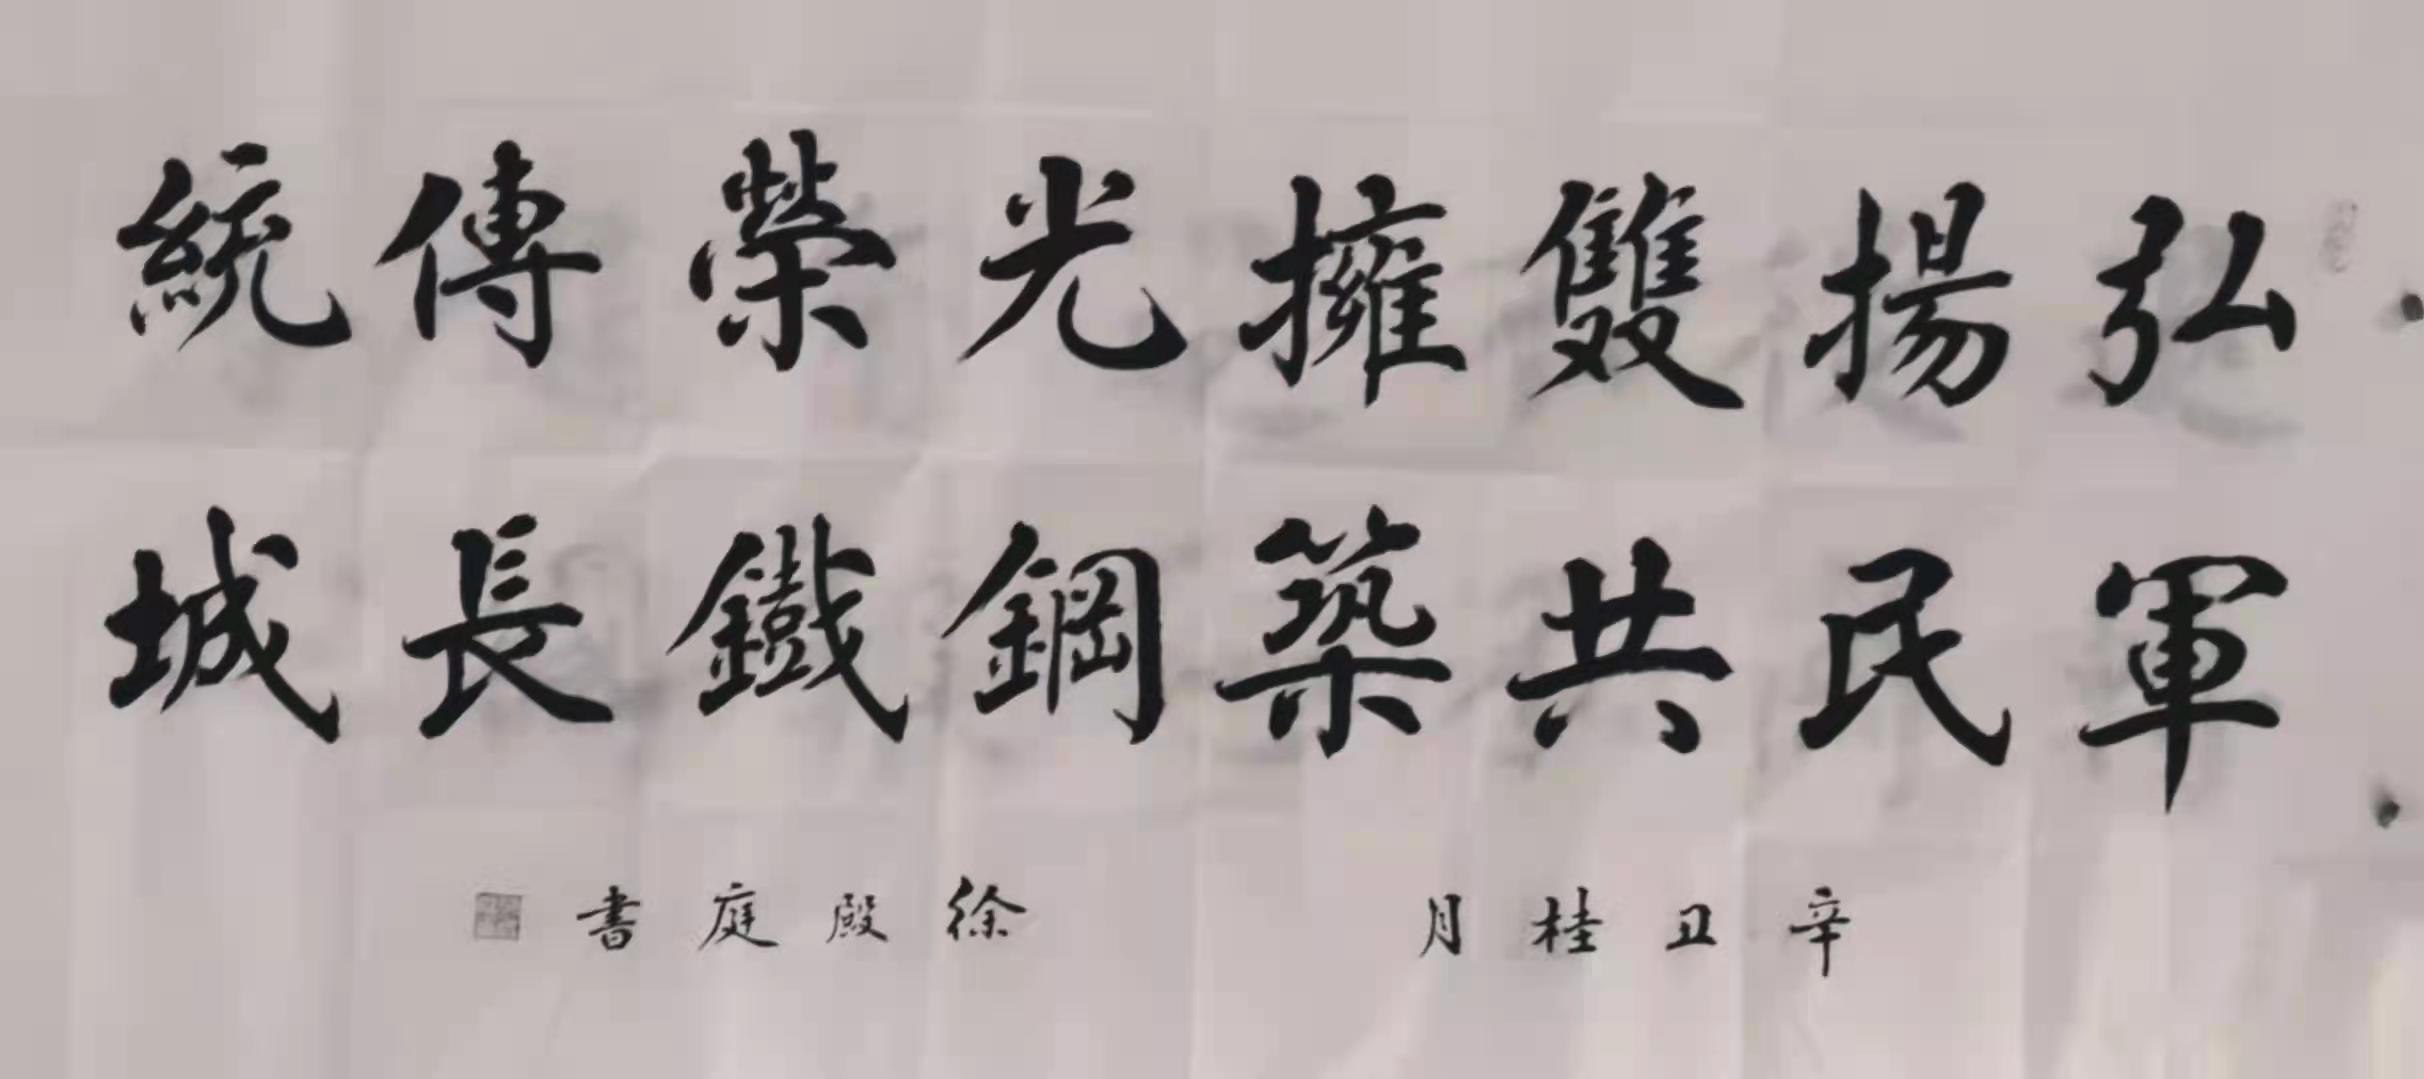 弘揚雙擁光榮傳統
軍民共築鋼鐵長城
辛丑桂月
徐殿庭書